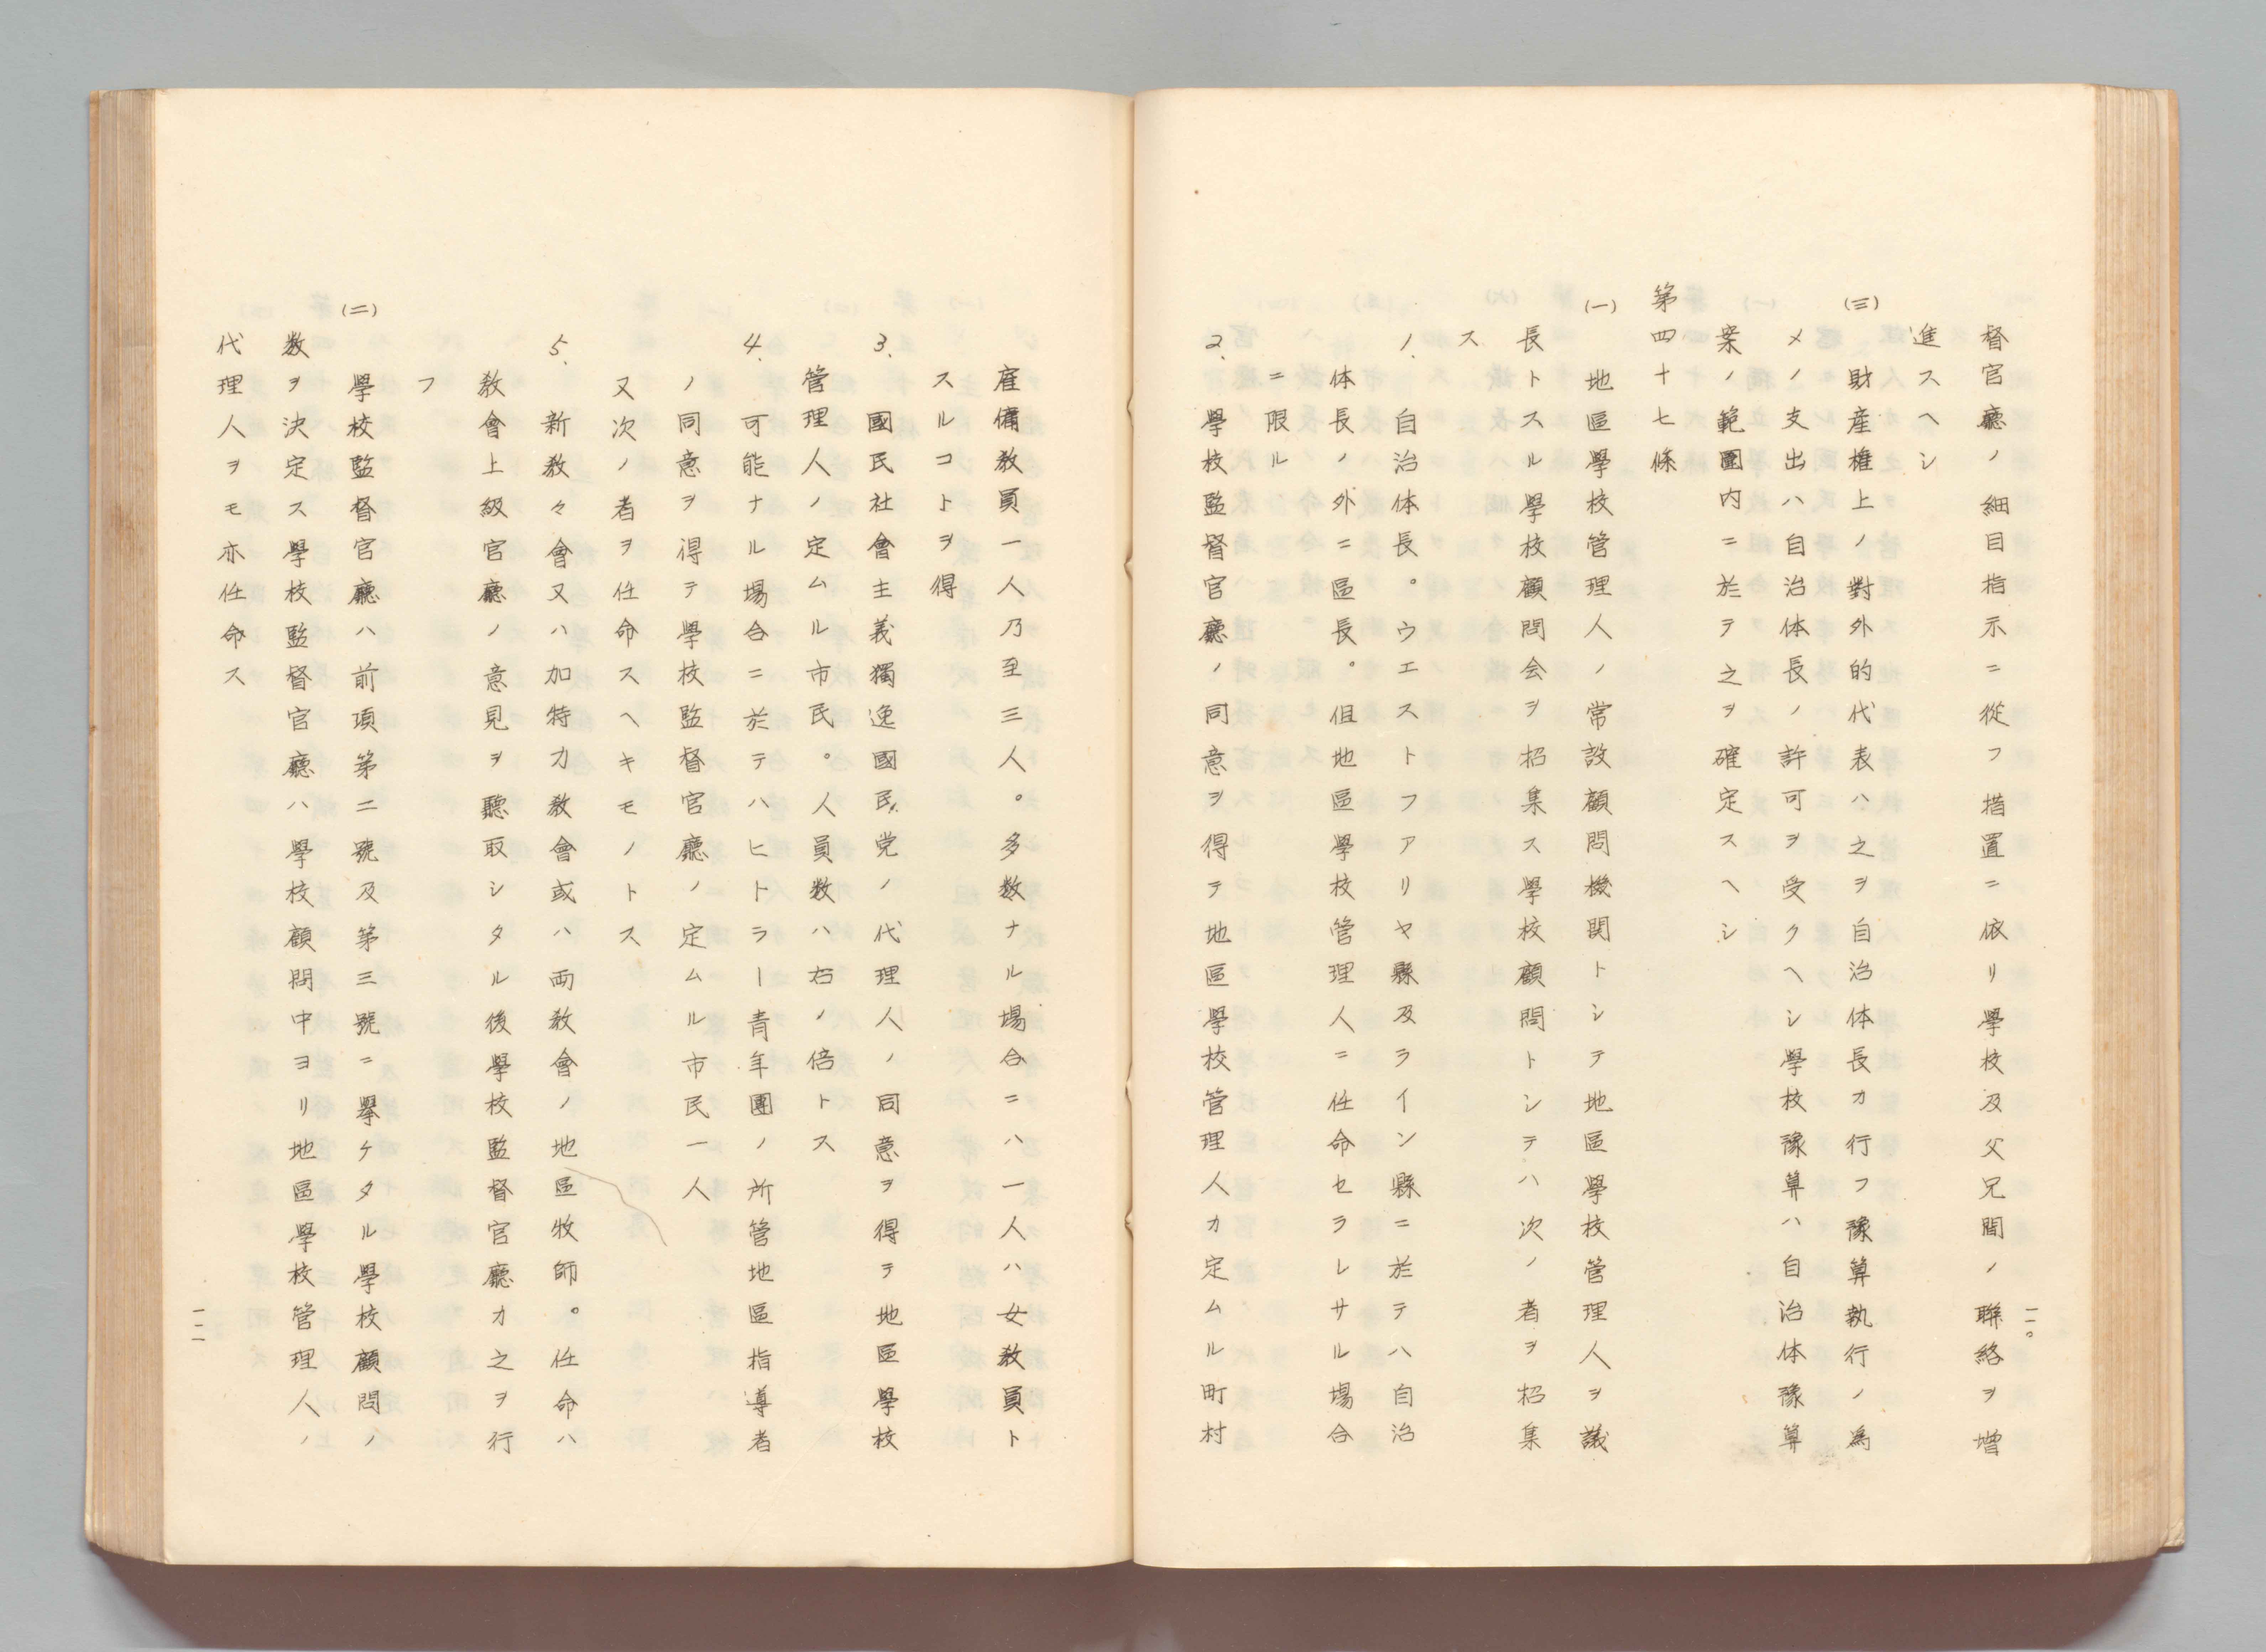 督官廳ノ細目指示ニ從フ措置ニ依リ學校及父兄間ノ聯絡ヲ増
進スヘシ
(三) 財産権上ノ對外的代表ハ之ヲ自治体長カ行フ豫算執行ノ爲
メノ支出ハ自治体長ノ許可ヲ受クヘシ學校豫算ハ自治体豫算
案ノ範圍内ニ於テ之ヲ確定スヘシ
第四十七條
(一) 地區學校管理人ノ常設顧問機関トシテ地區學校管理人ヲ議
長トスル學校顧問会ヲ招集ス學校顧問トシテハ次ノ者ヲ招集
ス
1. 自治体長。ウエストフアリヤ縣及ライン縣ニ於テハ自治
体長ノ外ニ區長。但地區學校管理人ニ任命セラレサル場合
ニ限ル
2. 學校監督官廳ノ同意ヲ得テ地區學校管理人カ定ムル町村
一一〇
雇傭教員一人乃至三人。多数ナル場合ニハ一人ハ女教員ト
スルコトヲ得
3. 國民社會主義獨逸國民党ノ代理人ノ同意ヲ得テ地區學校
管理人ノ定ムル市民。人員数ハ右ノ倍トス
4. 可能ナル場合ニ於テハヒトラー青年團ノ所管地區指導者
ノ同意ヲ得テ學校監督官廳ノ定ムル市民一人
又次ノ者ヲ任命スヘキモノトス
5. 新教々會又ハ加特力教會或ハ両教會ノ地區牧師。任命ハ
教會上級官廳ノ意見ヲ聽取シタル後學校監督官廳カ之ヲ行
フ
(二) 學校監督官廳ハ前項第二號及第三號ニ擧ケタル學校顧問ノ
数ヲ決定ス學校監督官廳ハ學校顧問中ヨリ地區學校管理人ノ
代理人ヲモ亦任命ス
一一一